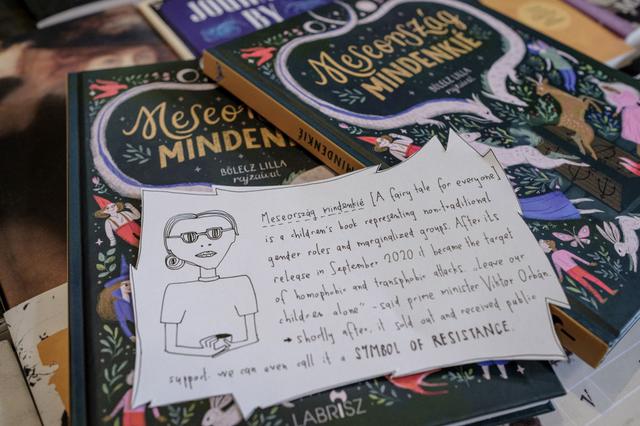 JOURNEY
BY
Meseország
MINDENKIÉ
BÖLECZ LILLA
rajzaival
MINDENKIÉ
Meseor
MINDEN
BÖLECZ LILLA
rajzaival
Meseország mindenkié [A fairy tale for everyone]
is a children's book representing non-traditional
gender roles and marginalized groups. After its
release in September 2020 it became the target
of homophobic and transphobic attacks. „Leave our
children alone" - said prime minister Viktor Orbán.
→ shortly after, it sold out and received public
support. we can even call it a SYMBOL OF RESISTANCE.
LABRISZ